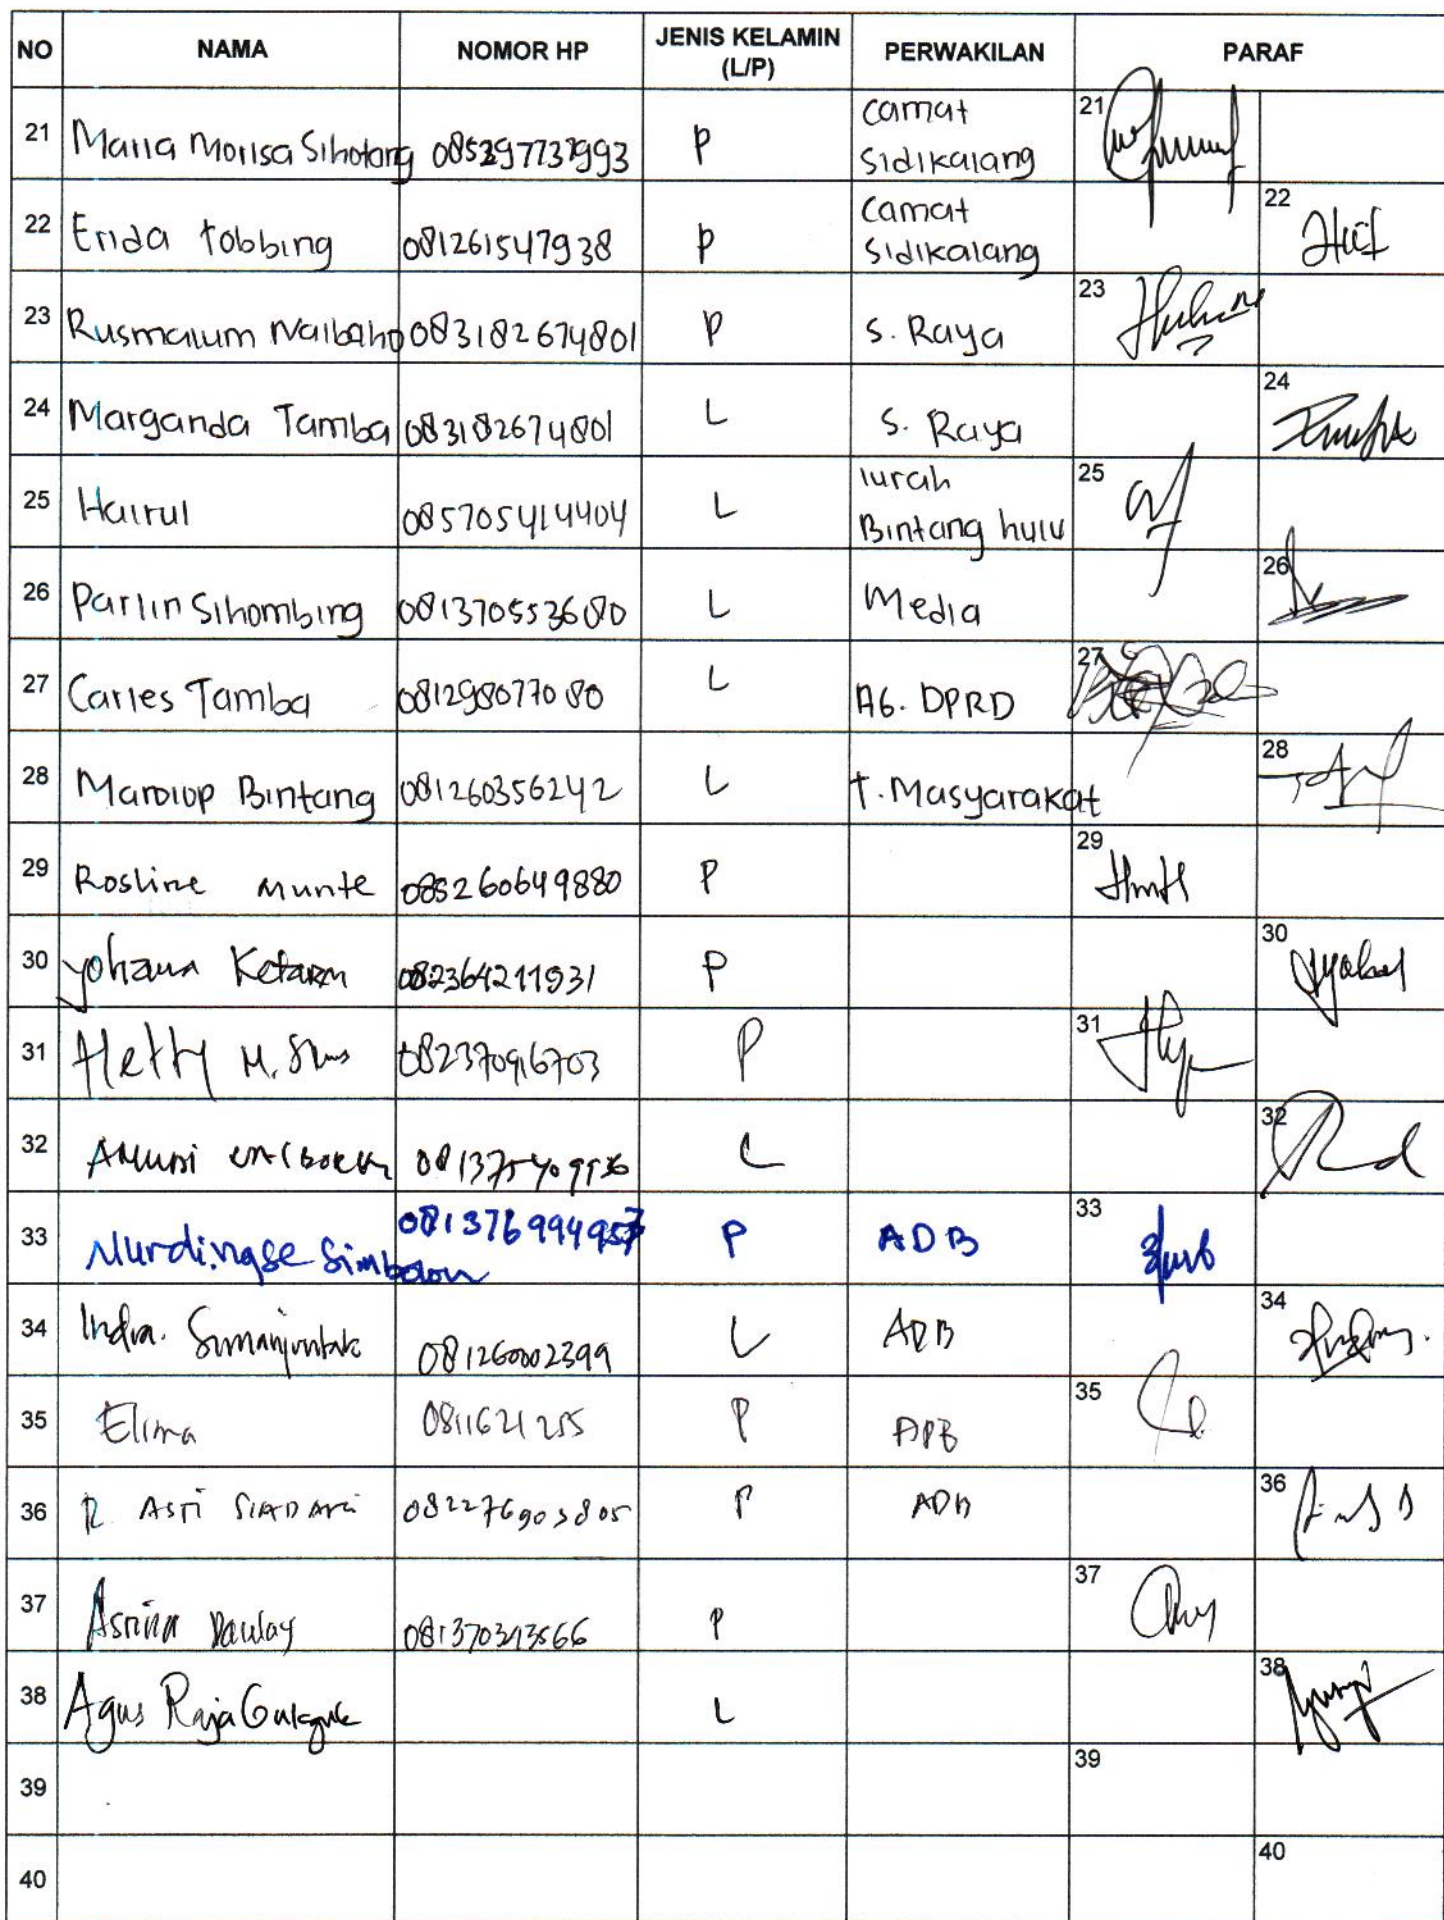 NO NAMA NOMOR HP JENIS KELAMIN (L/P) PERWAKILAN PARAF
21 Maria Morisa Sihotang 085297737993 P Camat Sidikalang 21
22 Erida tobbing 081261547938 P Camat Sidikalang 22
23 Rusmaium Naibaho 083182674801 P S. Raya 23
24 Marganda Tamba 083182674801 L S. Raya 24
25 Hairul 085705414404 L lurah Bintang hulu 25
26 Parlin Sihombing 081370553680 L Media 26
27 Carles Tamba 081298077080 L AG. DPRD 27
28 Mardiop Bintang 081260356242 L T. Masyarakat 28
29 Rosline Munte 085260649880 P 29
30 Yohana Ketaren 082364211931 P 30
31 Hetty M. 082370916703 P 31
32 L 32
33 Nurdingse Simbolon P ADB 33
34 Indra. Simanjuntak 081260002399 L ADB 34
35 Elima 0811621255 P ADB 35
36 R. ASTI SIADARI P ADB 36
37 Asrina Daulay 081370313566 P 37
38 Agus Raja Gukguk L 38
39 39
40 40